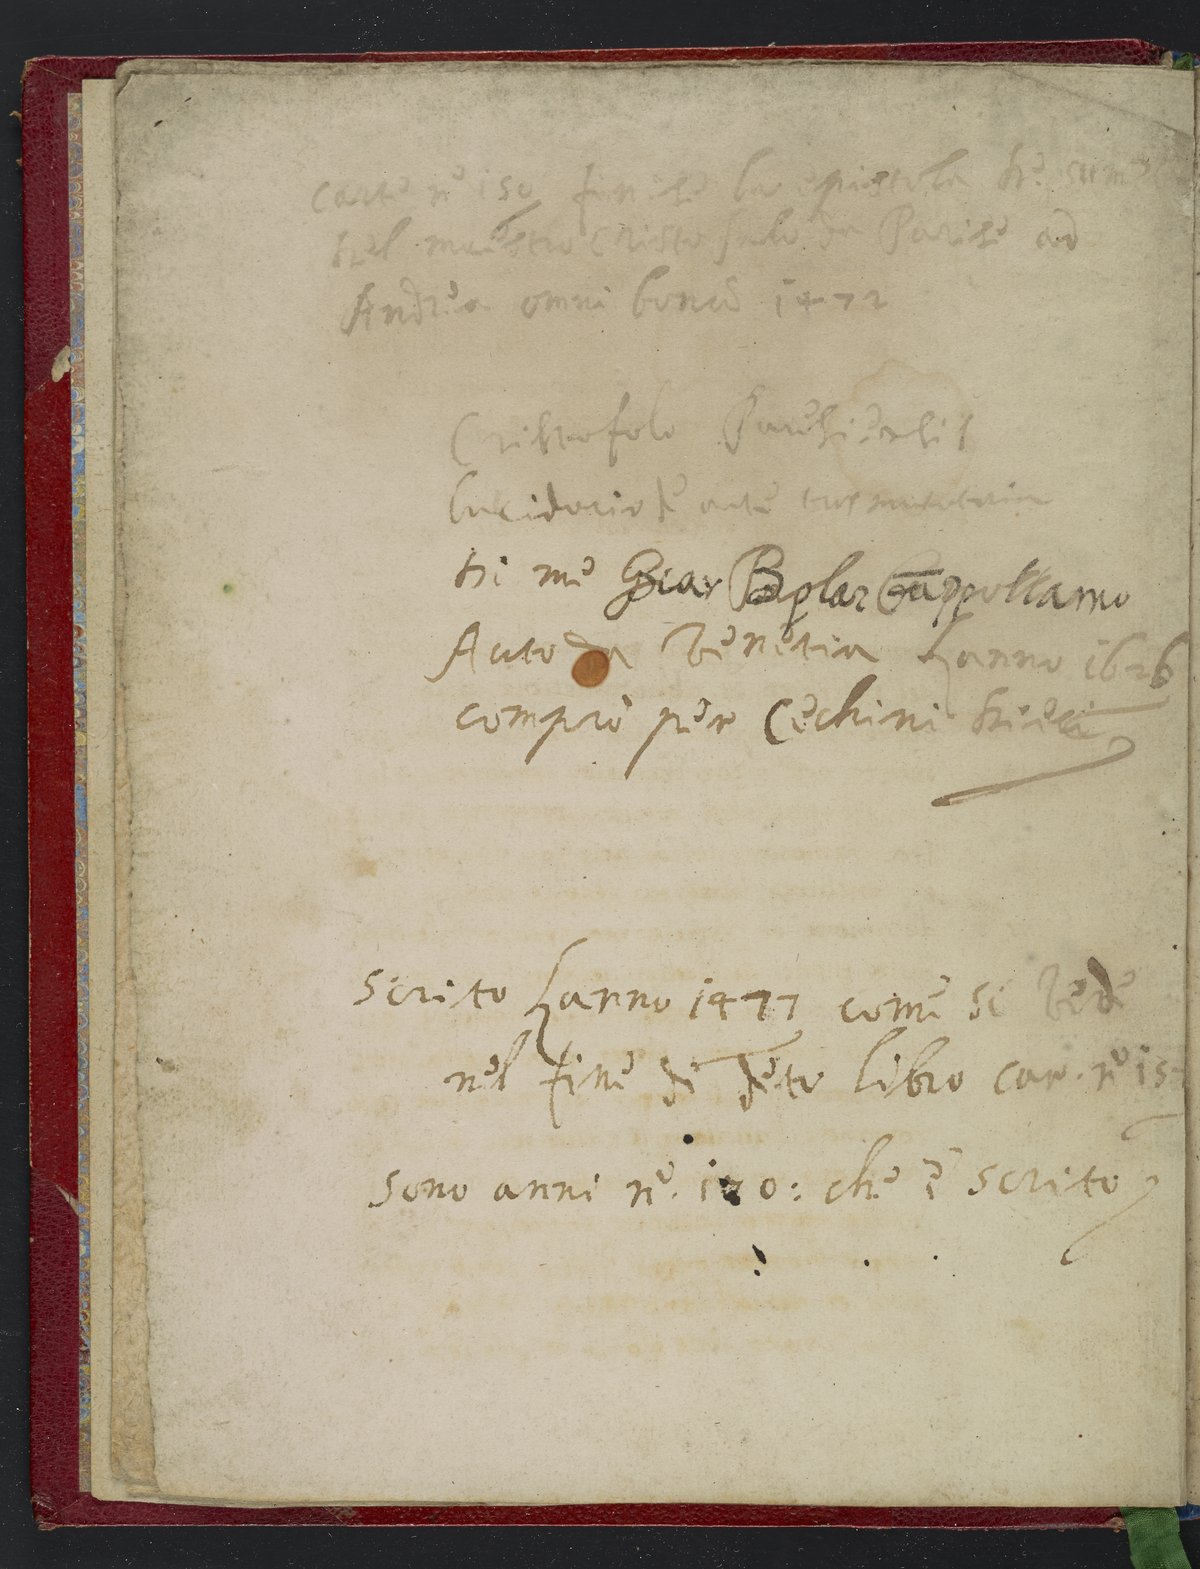 carte nº 150 finise la epistola
del maestro Cristofolo da Parise ad
Andrea omni bono 1472
Cristofolo Parisiensis
lucidario de arte trasmutatoria
di me
Auto da Venetia Lanno 1626
compro per Cechini dieci
scrito Lanno 1477 come si vede
nel fine di deto libro car. nº 15
sono anni nº. 170: che è scrito